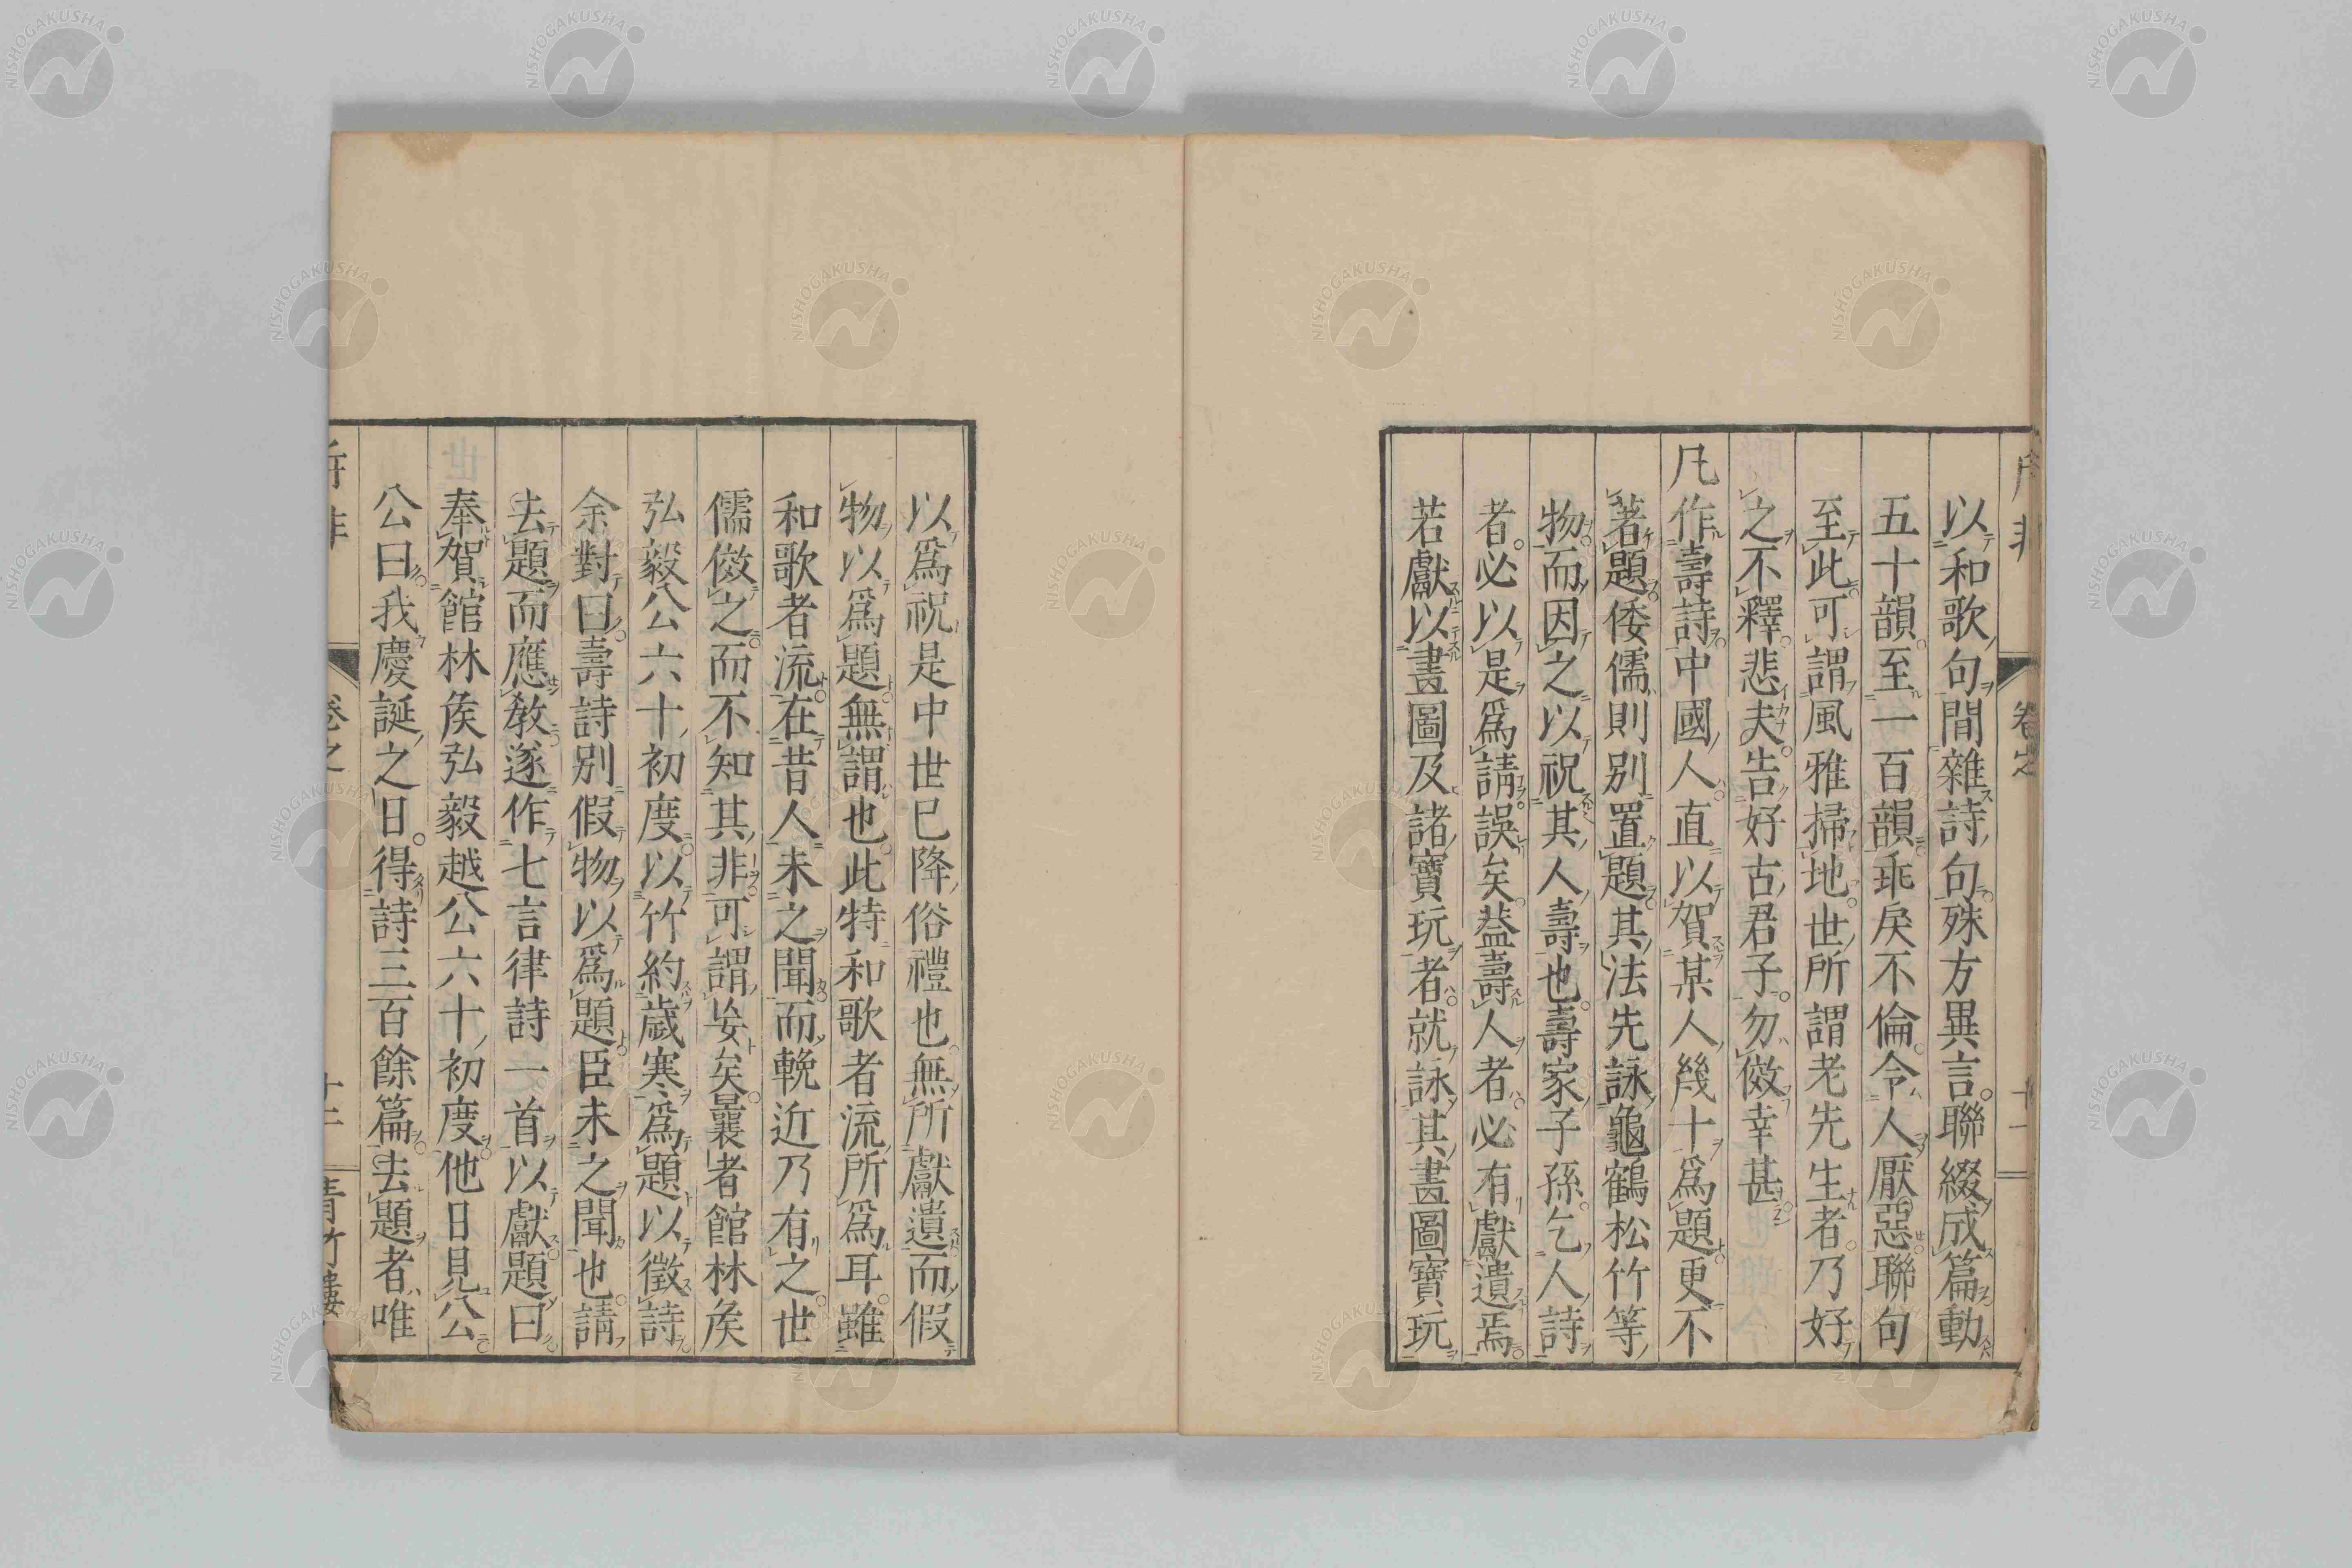 以和歌句間雜詩句殊方異言聯綴成篇動
五十韻至一百韻乖戾不倫令人厭惡聯句
至此可謂風雅掃地世所謂老先生者乃好
之不釋悲夫告好古君子勿傚幸甚
凡作壽詩中國人直以賀某人幾十爲題更不
著題倭儒則別置題其法先詠龜鶴松竹等
物而因之以祝其人壽也壽家子孫乞人詩
者必以是爲請誤矣葢壽人者必有獻遺焉
若獻以畫圖及諸寶玩者就詠其畫圖寶玩
卷之
十一
以爲祝是中世已降俗禮也無所獻遺而假
物以爲題無謂也此特和歌者流所爲耳雖
和歌者流在昔人未之聞而輓近乃有之世
儒傚之而不知其非可謂妄矣曩者館林矦
弘毅公六十初度以竹約歲寒爲題以徵詩
余對曰壽詩別假物以爲題臣未之聞也請
去題而應敎遂作七言律詩一首以獻題曰
奉賀館林矦弘毅越公六十初度他日見公
公曰我慶誕之日得詩三百餘篇去題者唯
卷之
十二
青竹樓
NISHOGAKUSHA